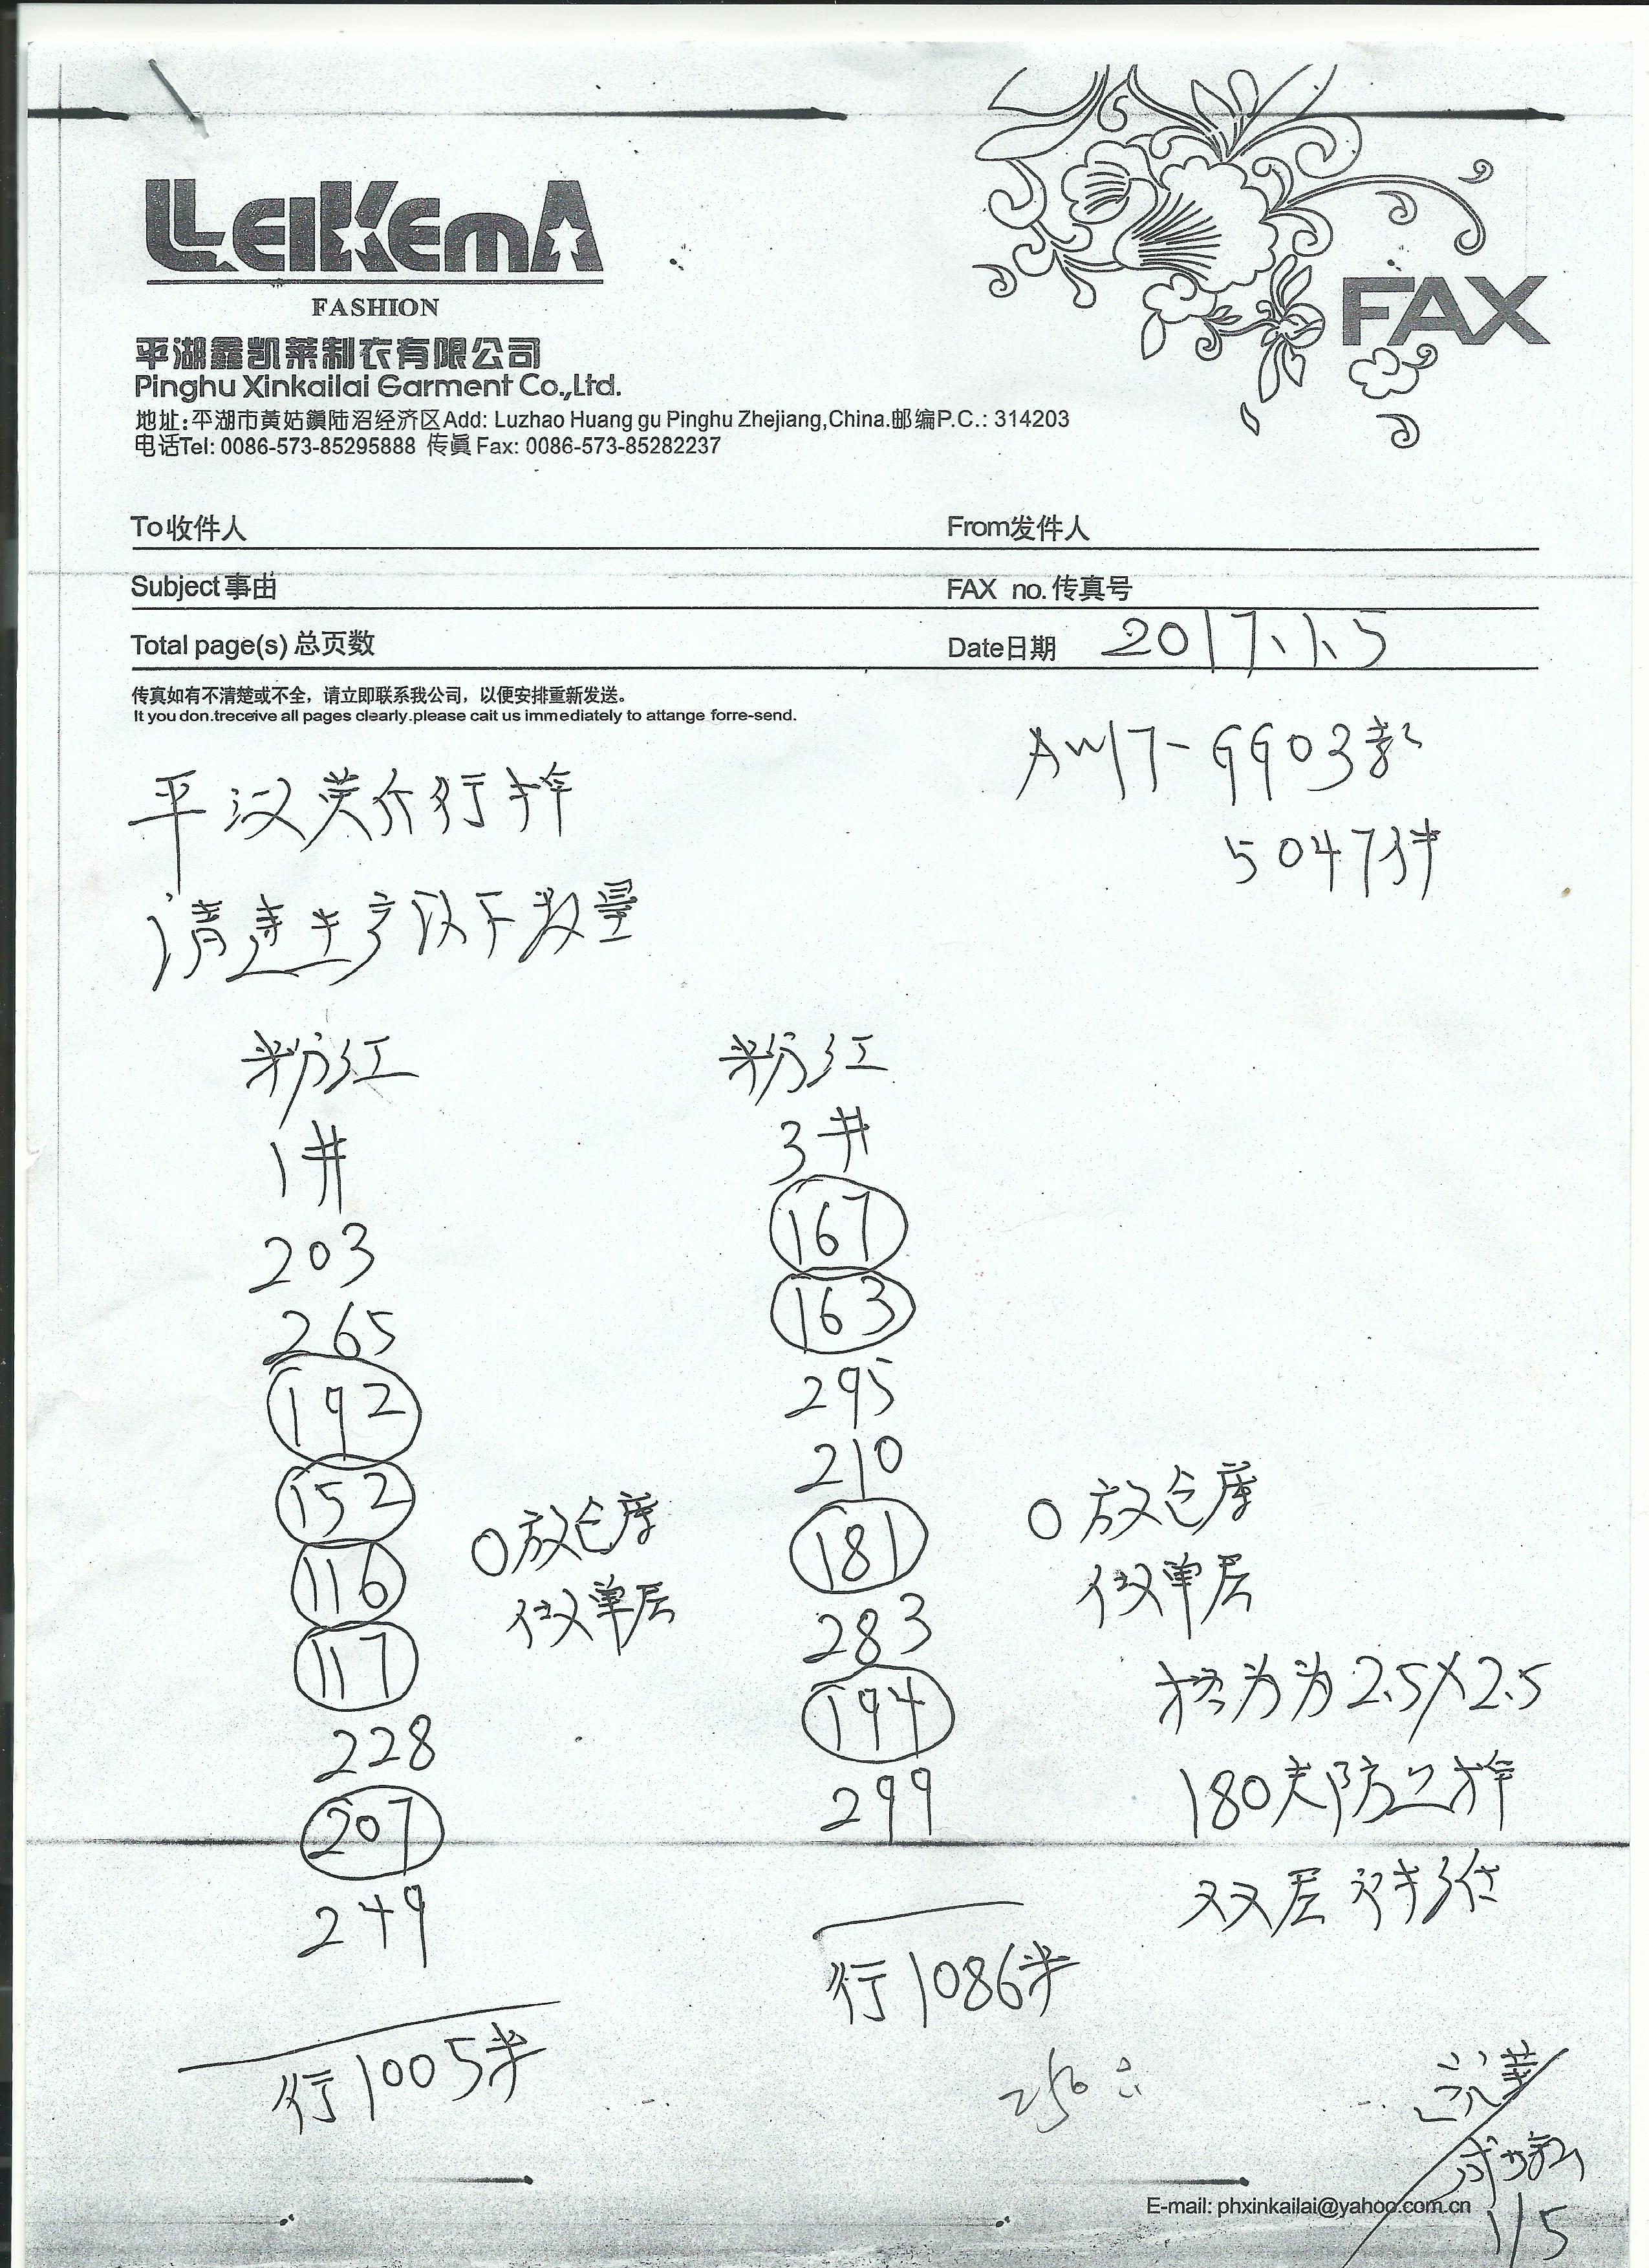 LEIKEMA
FASHION
FAX
平湖鑫凯莱制衣有限公司
Pinghu Xinkailai Garment Co.,Ltd.
地址:平湖市黄姑鎭陆沼经济区Add: Luzhao Huang gu Pinghu Zhejiang,China.邮编P.C.: 314203
电话Tel: 0086-573-85295888 传眞Fax: 0086-573-85282237
To收件人 From发件人
Subject事由 FAX no.传真号
Total page(s)总页数 Date日期 2017.1.5
传真如有不清楚或不全，请立即联系我公司，以便安排重新发送。
It you don.treceive all pages clearly.please cait us immediately to attange forre-send.
AW17-9903款
5047件
平汉 行样
请 生产以下数量
粉红
1#
203
265
192
152
116
117
228
207
249
行1005米
O放仓库
做单层
粉红
3#
167
163
295
210
181
283
194
299
行1086米
O放仓库
做单层
格为为2.5X2.5
180 防 样
双层
1/5
E-mail: phxinkailai@yahoo.com.cn